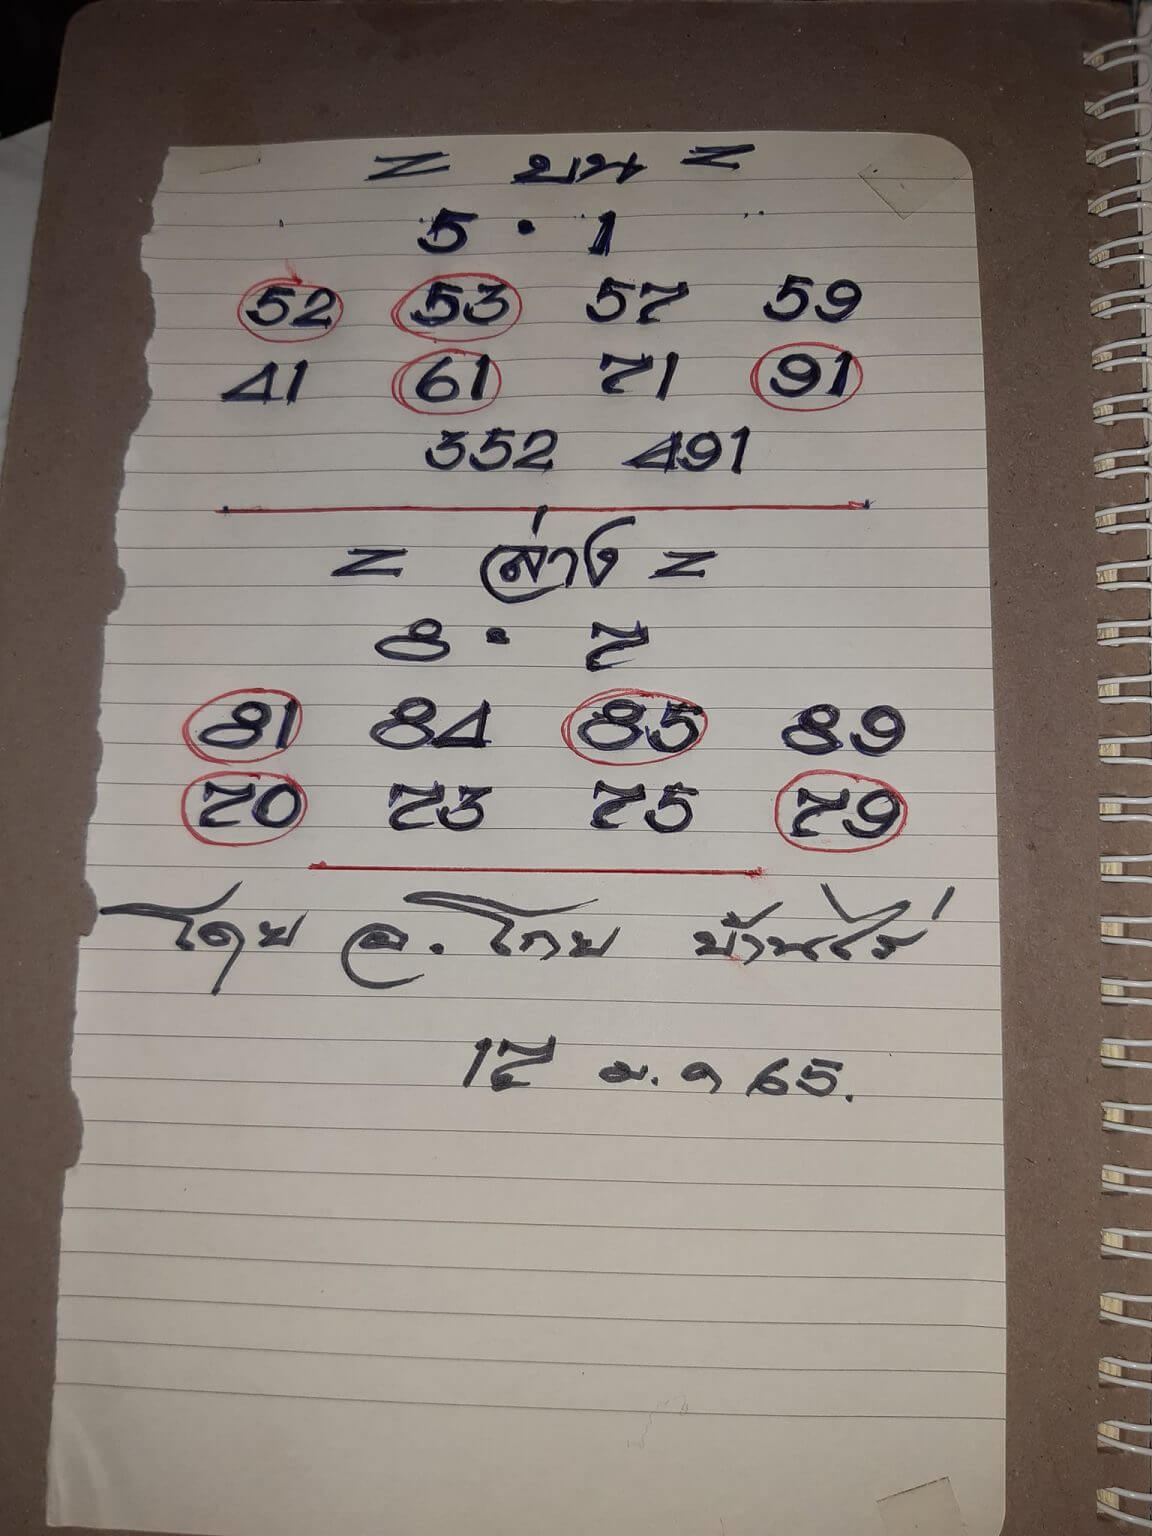 = บน =
5 · 1
52 53 57 59
41 61 71 91
352 491
= ล่าง =
8 · 7
81 84 85 89
70 73 75 79
โดย อ. โกย บ้านไร่
17 ม.ค 65.